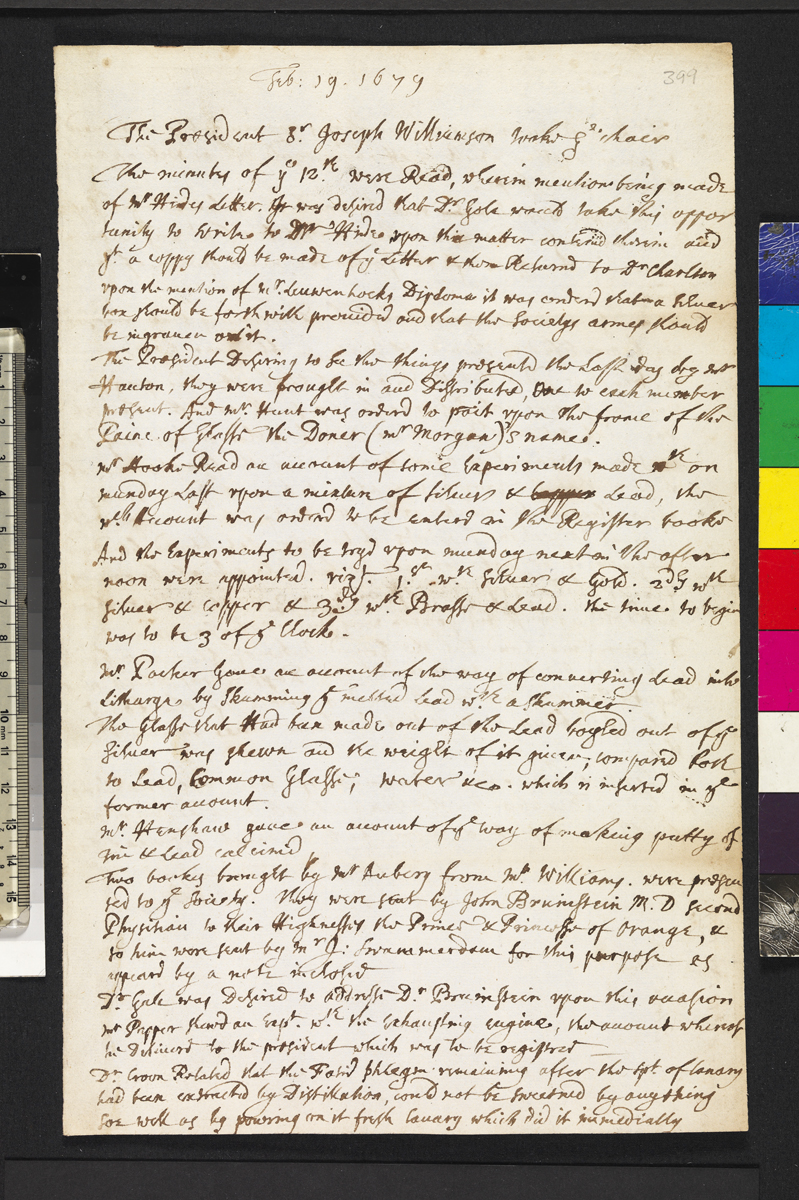 Feb: 19. 1679
399
The President Sr. Joseph Williamson in the chair
The minutes of ye 12th were Read, wherein mention being made
of mr Hides Letter. It was desired that Dr Gale would take this oppor
tunity to write to Mr Hide upon the matter containd therin and
yt a coppy should be made of ye Letter & then Returnd to Dr Charlton
upon the mention of mr. Leuwenhocks Diploma it was orderd that a siluer
box should be forthwith prouided and that the Societys armes should
be ingrauen on it.
The President Desiring to see the things presented the Last day by mr
Hauton, they were brought in and Distributed, one to each member
present. And mr. Hunt was orderd to paist upon the frame of the
Paine of Glasse the Doner (mr Morgan)'s name.
mr Hooke Read an account of some Experiments made on
munday Last upon a mixture of siluer & Lead, the
wch account was orderd to be enterd in the Register booke
And the Experiments to be tryd upon munday next in the after
noon were appointed. vizt. 1.st wth Siluer & Gold. 2dly wth
Siluer & copper & 3dly wth Brasse & Lead. The time to begin
was to be 3 of ye Clock.
Mr. Packer gaue an account of the way of conuerting Lead into
Litharge by Skumming ye melted Lead wth a skummer.
The Glasse that Had been made out of the Lead boyled out of ye
Siluer was shewn and the weight of it giuen, compared both
to Lead, Common Glasse, water &c. which is inserted in ye
former account.
mr. Henshaw gaue an account of ye way of making putty of
tin & Lead calcined
Two bookes brought by mr Aubery from mr Williams. were presen
ted to ye Society. They were sent by John Bruinstein M.D second
Physitian to their Highnesses the Prince & Princesse of Orange, &
to him were sent by mr J: Swammerdam for this purpose as
appeard by a note inclosed
Dr. Gale was Desired to addresse Dr Bruinstein upon this occasion
mr Papper shewd an Expt. wth the Exhausting engine, the account whereof
he deliuerd to the president which was to be registred
Dr Croon Related that the Fœtid phlegm remaining after the spt. of Canary
had been extracted by Distillation, could not be sweetned by anything
soe well as by powring on it fresh Canary which did it immediatly